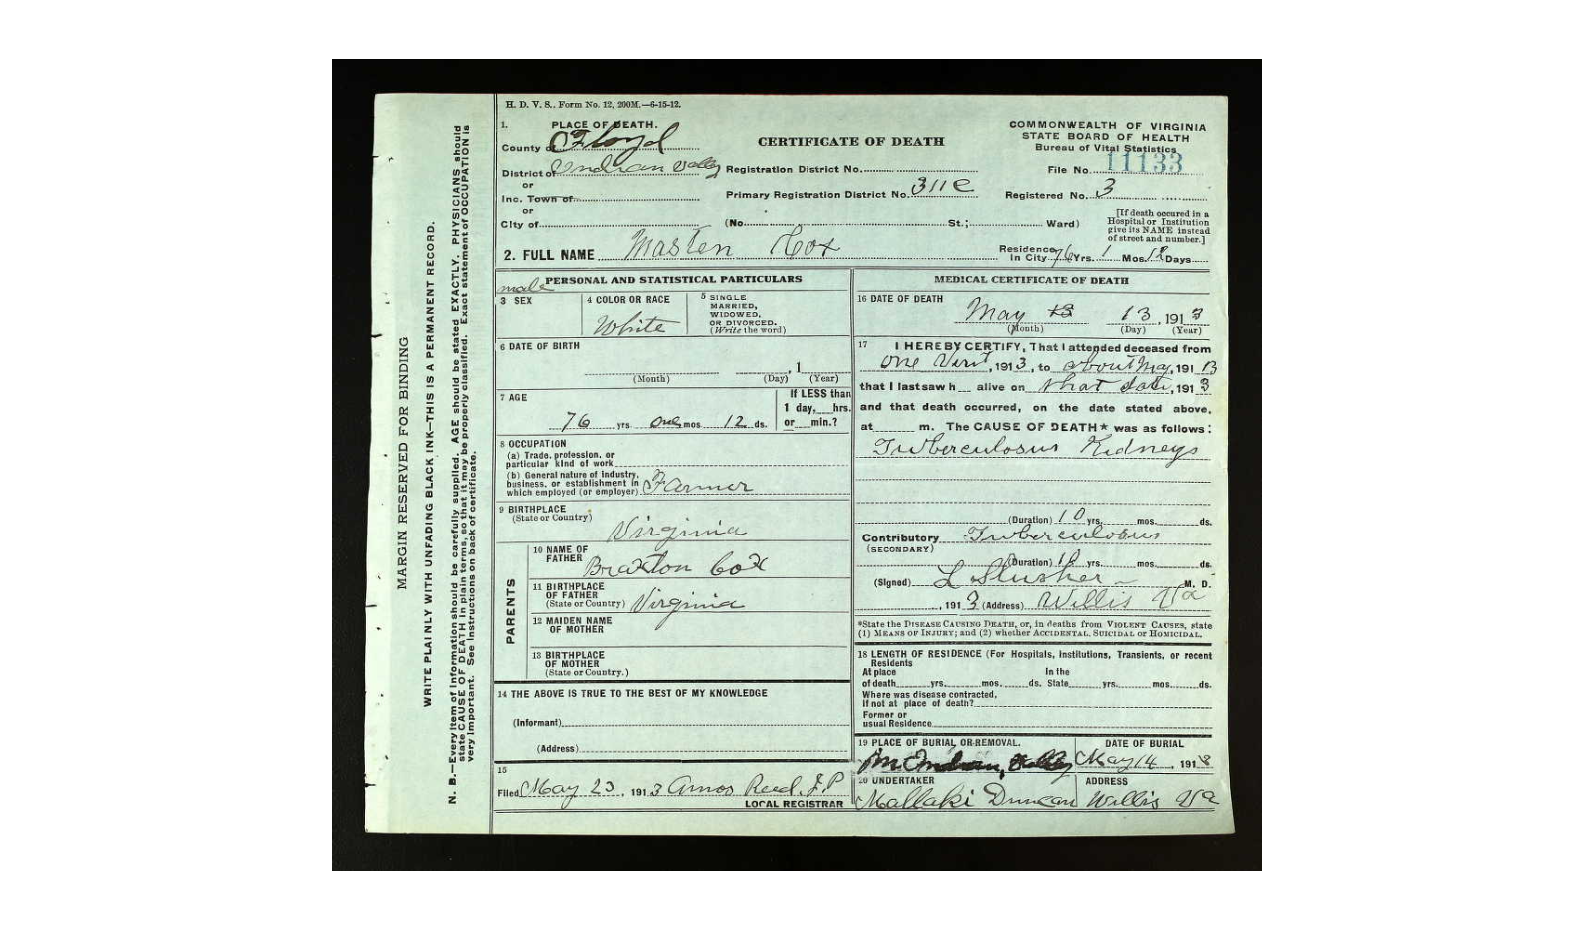 H. D. V. S., Form No. 12, 200M.—6-15-12.
1. PLACE OF DEATH.
County of Floyd
District of Indian Valley
or
Inc. Town of
or
City of
CERTIFICATE OF DEATH
Registration District No.
Primary Registration District No. 311 e
(No. St.; Ward)
COMMONWEALTH OF VIRGINIA
STATE BOARD OF HEALTH
Bureau of Vital Statistics
File No. 11133
Registered No. 3
[If death occured in a
Hospital or Institution
give its NAME instead
of street and number.]
2. FULL NAME Masten Cox
Residence
In City 76 Yrs. 1 Mos. 12 Days
PERSONAL AND STATISTICAL PARTICULARS
male
3 SEX
4 COLOR OR RACE
White
5 SINGLE
MARRIED,
WIDOWED,
OR DIVORCED.
(Write the word)
6 DATE OF BIRTH
, 1
(Month) (Day) (Year)
7 AGE
76 yrs. one mos 12 ds.
If LESS than
1 day, hrs.
or min.?
8 OCCUPATION
(a) Trade, profession, or
particular kind of work
(b) General nature of industry,
business, or establishment in
which employed (or employer) Farmer
9 BIRTHPLACE
(State or Country)
Virginia
PARENTS
10 NAME OF
FATHER
Braxton Cox
11 BIRTHPLACE
OF FATHER
(State or Country) Virginia
12 MAIDEN NAME
OF MOTHER
13 BIRTHPLACE
OF MOTHER
(State or Country.)
14 THE ABOVE IS TRUE TO THE BEST OF MY KNOWLEDGE
(Informant)
(Address)
15
Filed May 23, 1913 Amos Reed. J.P
LOCAL REGISTRAR
MEDICAL CERTIFICATE OF DEATH
16 DATE OF DEATH
May 13 13, 1913
(Month) (Day) (Year)
17 I HEREBY CERTIFY, That I attended deceased from
one Visit, 1913, to about May, 1913
that I last saw h alive on that date, 1913
and that death occurred, on the date stated above,
at m. The CAUSE OF DEATH* was as follows:
Tuberculosus Kidneys
(Duration) 10 yrs. mos. ds.
Contributory Tuberculosus
(SECONDARY)
(Duration) 10 yrs. mos. ds.
(Signed) L Slusher M. D.
, 1913 (Address) Willis Va
*State the DISEASE CAUSING DEATH, or, in deaths from VIOLENT CAUSES, state
(1) MEANS OF INJURY; and (2) whether ACCIDENTAL, SUICIDAL or HOMICIDAL.
18 LENGTH OF RESIDENCE (For Hospitals, Institutions, Transients, or recent
Residents
At place In the
of death yrs. mos. ds. State yrs. mos. ds.
Where was disease contracted,
If not at place of death?
Former or
usual Residence
19 PLACE OF BURIAL OR REMOVAL.
Indian, Valley
DATE OF BURIAL
May 14, 1913
20 UNDERTAKER
Mallaki Duncan
ADDRESS
Willis Va
MARGIN RESERVED FOR BINDING
WRITE PLAINLY WITH UNFADING BLACK INK—THIS IS A PERMANENT RECORD.
N. B.—Every item of information should be carefully supplied. AGE should be stated EXACTLY. PHYSICIANS should
state CAUSE OF DEATH in plain terms, so that it may be properly classified. Exact statement of OCCUPATION is
very important. See instructions on back of certificate.